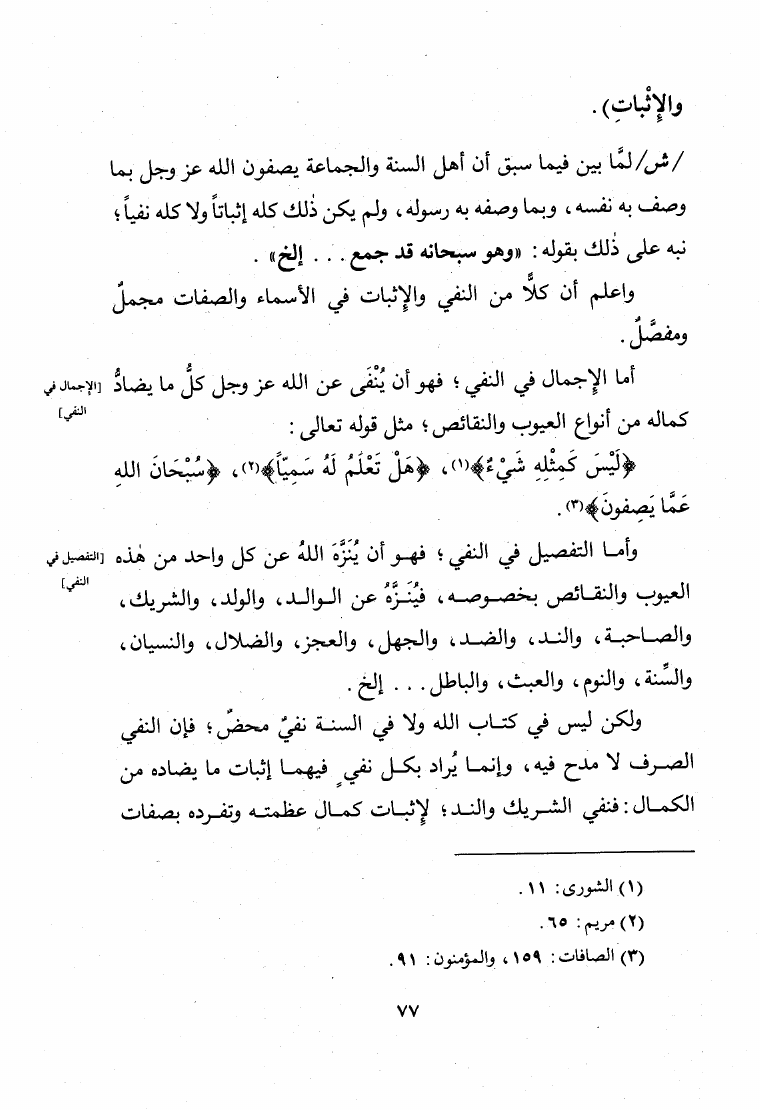 والإِثْباتِ).
/ش/لمَّا بين فيما سبق أن أهل السنة والجماعة يصفون الله عز وجل بما
وصف به نفسه، وبما وصفه به رسوله، ولم يكن ذٰلك كله إثباتاً ولا كله نفياً؛
نبه على ذٰلك بقوله: «وهو سبحانه قد جمع... إلخ».
واعلم أن كلًّا من النفي والإثبات في الأسماء والصفات مجملٌ
ومفصَّلٌ.
أما الإِجمال في النفي؛ فهو أن يُنْفَى عن الله عز وجل كلُّ ما يضادُّ
[الإجمال في
النفي]
كماله من أنواع العيوب والنقائص؛ مثل قوله تعالى:
﴿لَيْسَ كَمِثْلِهِ شَيْءٌ﴾(١)، ﴿هَلْ تَعْلَمُ لَهُ سَمِيّاً﴾(٢)، ﴿سُبْحَانَ اللهِ
عَمَّا يَصِفونَ﴾(٣).
وأما التفصيل في النفي؛ فهو أن يُنَزَّهَ اللهُ عن كل واحد من هٰذه
[التفصيل في
النفي]
العيوب والنقائص بخصوصه، فيُنَزَّهُ عن الوالد، والولد، والشريك،
والصاحبة، والند، والضد، والجهل، والعجز، والضلال، والنسيان،
والسِّنة، والنوم، والعبث، والباطل... إلخ.
ولكن ليس في كتاب الله ولا في السنة نفيٌ محضٌ؛ فإن النفي
الصرف لا مدح فيه، وإنما يُراد بكل نفيٍ فيهما إثبات ما يضاده من
الكمال: فنفي الشريك والند؛ لإِثبات كمال عظمته وتفرده بصفات
(١) الشورى: ١١.
(٢) مريم: ٦٥.
(٣) الصافات: ١٥٩، والمؤمنون: ٩١.
٧٧